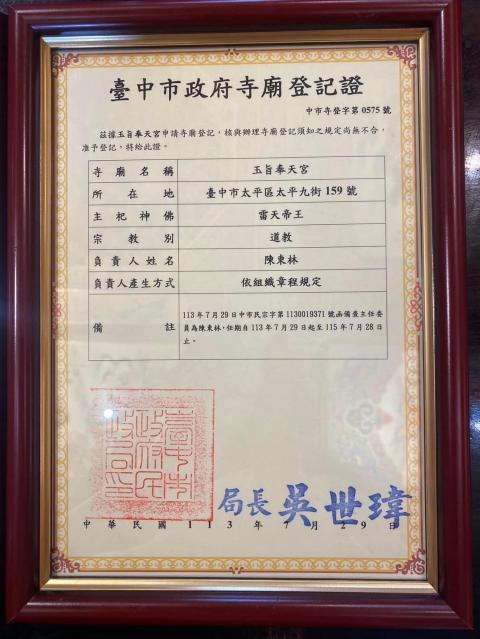 臺中市政府寺廟登記證
中市寺登字第0575號
茲據玉旨奉天宮申請寺廟登記，核與辦理寺廟登記須知之規定尚無不合，
准予登記，特給此證。
寺廟名稱 玉旨奉天宮
所在地 臺中市太平區太平九街159號
主祀神佛 雷天帝王
宗教別 道教
負責人姓名 陳東林
負責人產生方式 依組織章程規定
備註 113年7月29日中市民宗字第1130019371號函備查主任委
員為陳東林，任期自113年7月29日起至115年7月28日
止。
臺中市
政府民
政局印
局長 吳世瑋
中華民國113年7月29日